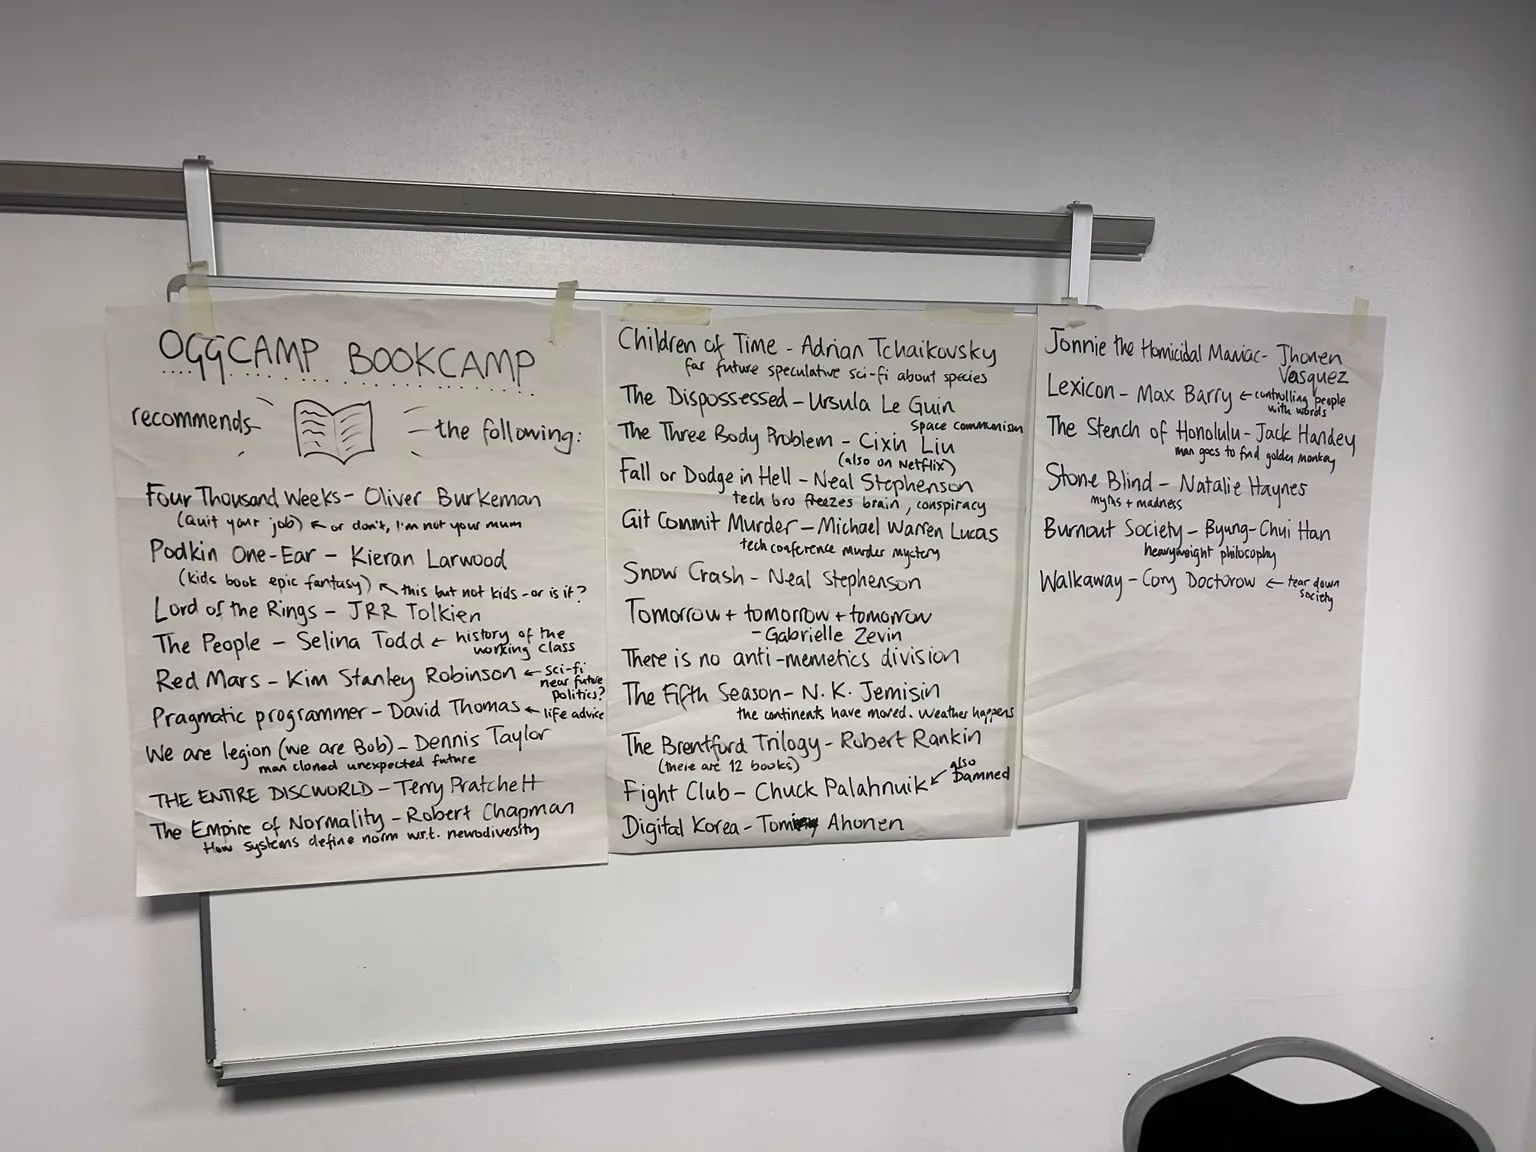 OGGCAMP BOOKCAMP
recommends the following:
Four Thousand Weeks - Oliver Burkeman
(quit your job) ← or don't, I'm not your mum
Podkin One-Ear - Kieran Larwood
(kids book epic fantasy) ↖ this but not kids - or is it?
Lord of the Rings - JRR Tolkien
The People - Selina Todd ← history of the
working class
Red Mars - Kim Stanley Robinson ← sci-fi
near future
politics?
Pragmatic programmer - David Thomas ← life advice
We are legion (we are Bob) - Dennis Taylor
man cloned unexpected future
THE ENTIRE DISCWORLD - Terry Pratchett
The Empire of Normality - Robert Chapman
How systems define norm w.r.t. neurodiversity
Children of Time - Adrian Tchaikovsky
far future speculative sci-fi about species
The Dispossessed - Ursula Le Guin
Space communism
The Three Body Problem - Cixin Liu
(also on Netflix)
Fall or Dodge in Hell - Neal Stephenson
tech bro freezes brain, conspiracy
Git Commit Murder - Michael Warren Lucas
tech conference murder mystery
Snow Crash - Neal Stephenson
Tomorrow + tomorrow + tomorrow
- Gabrielle Zevin
There is no anti-memetics division
The Fifth Season - N. K. Jemisin
the continents have moved. Weather happens
The Brentford Trilogy - Robert Rankin
(there are 12 books)
Fight Club - Chuck Palahnuik ↙ also
Damned
Digital Korea - Tomi Ahonen
Jonnie the Homicidal Maniac - Jhonen
Vasquez
Lexicon - Max Barry ← controlling people
with words
The Stench of Honolulu - Jack Handey
man goes to find golden monkey
Stone Blind - Natalie Haynes
myths + madness
Burnout Society - Byung-Chul Han
heavyweight philosophy
Walkaway - Cory Doctorow ← tear down
society